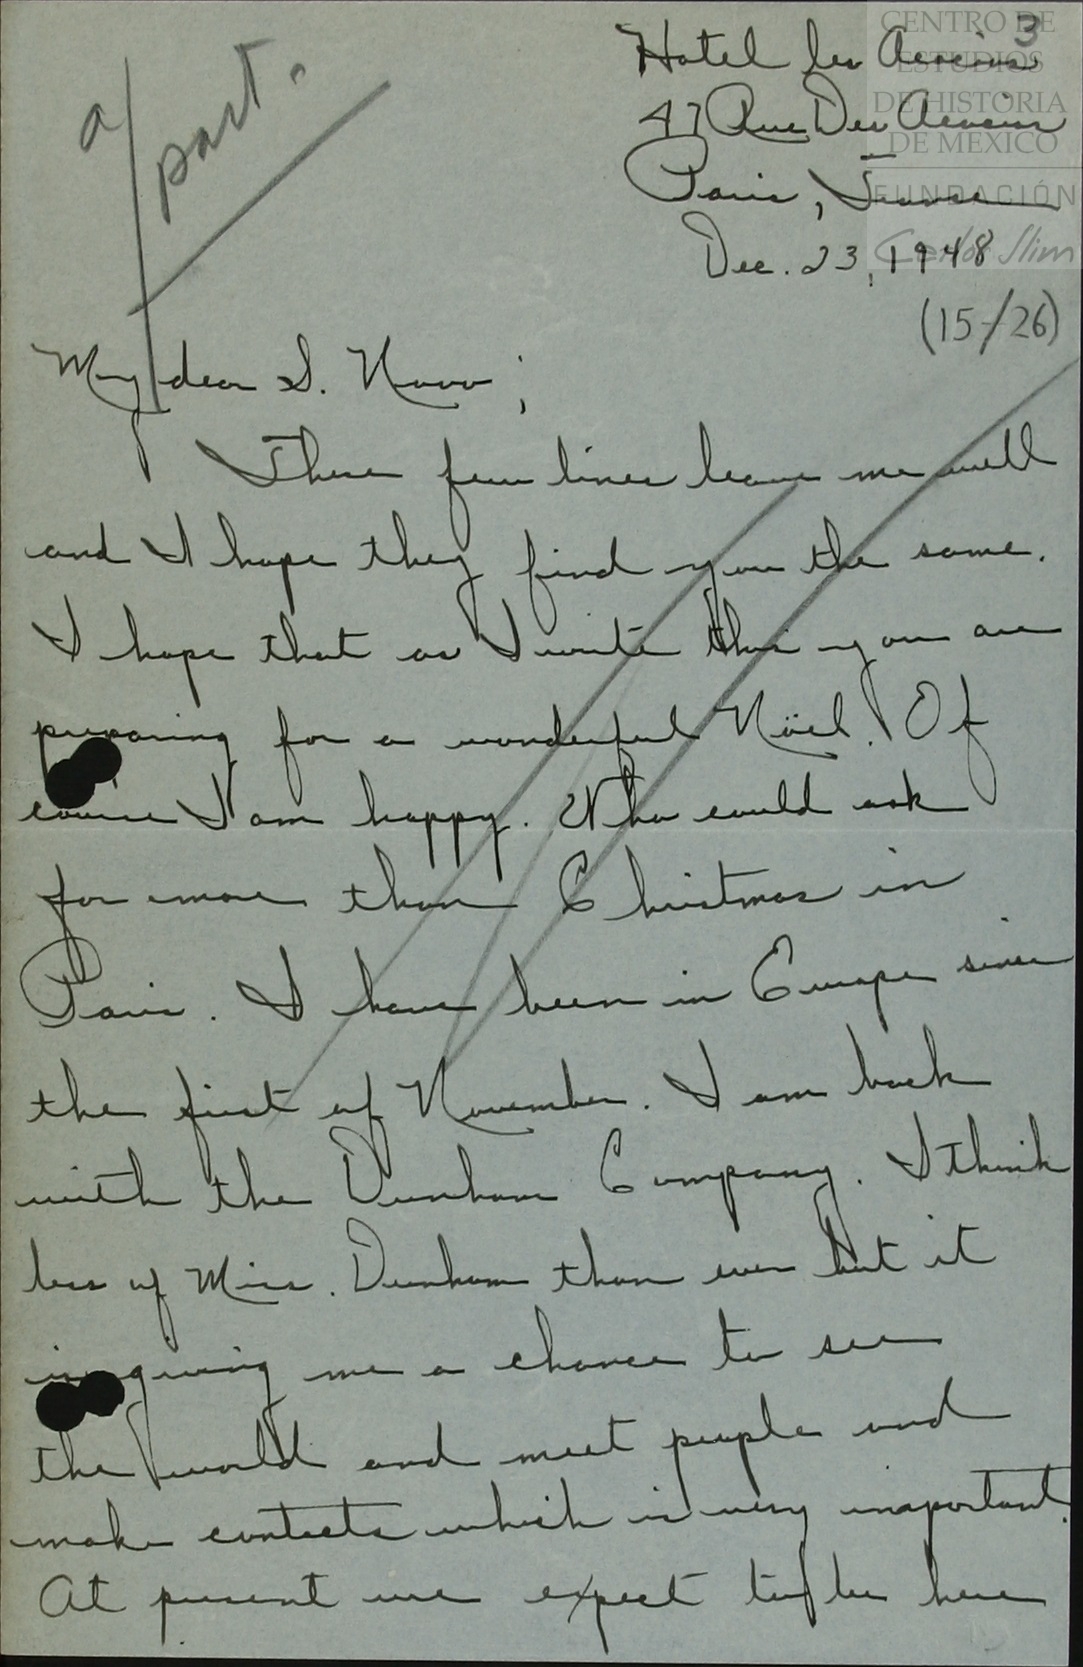 3
CENTRO DE
ESTUDIOS
DE HISTORIA
DE MEXICO
FUNDACIÓN
Carlos Slim
a/part.
Hotel les Acacias
47 Rue Des Acacias
Paris, France
Dec. 23, 1948
(15-/26)
My dear S. Novo;
These few lines leave me well
and I hope they find you the same.
I hope that as I write this you are
preparing for a wonderful Nöel. Of
course I am happy. Who could ask
for more than Christmas in
Paris. I have been in Europe since
the first of November. I am back
with the Dunham Company. I think
less of Miss. Dunham than ever but it
is giving me a chance to see
the world and meet people and
make contacts which is very important.
At present we expect to be here